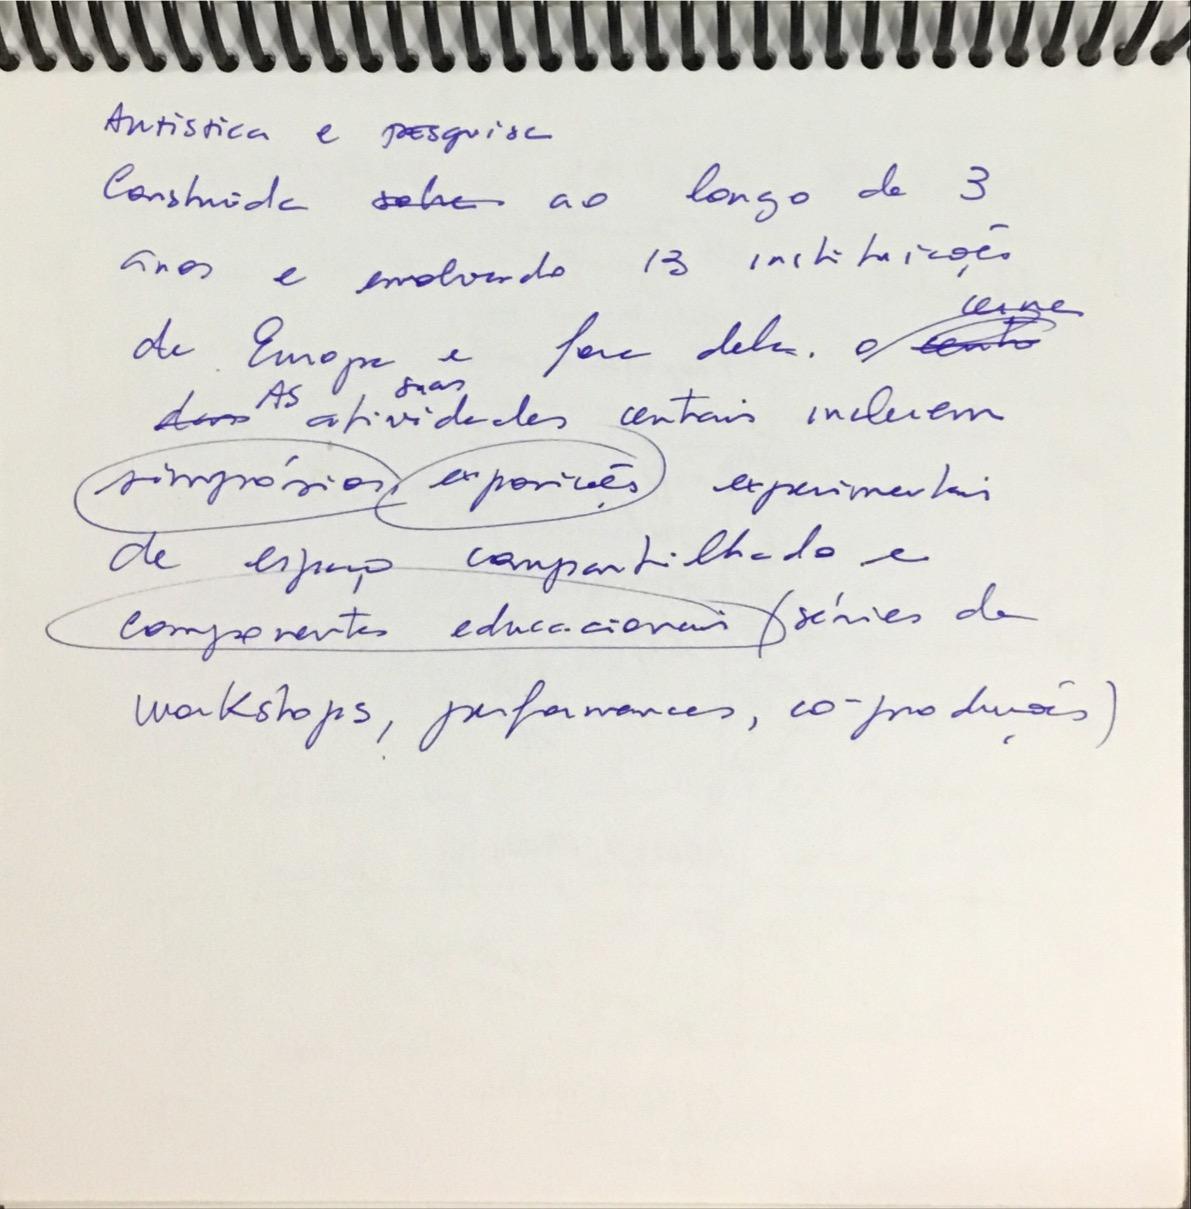 Artistica e pesquisa
Construída ao longo de 3
anos e envolvendo 13 instituições
da Europa e fora dela. o cerne
As suas atividades centrais incluem
simpósios, exposições experimentais
de espaço compartilhado e
componentes educacionais (séries de
workshops, performances, co-produções)